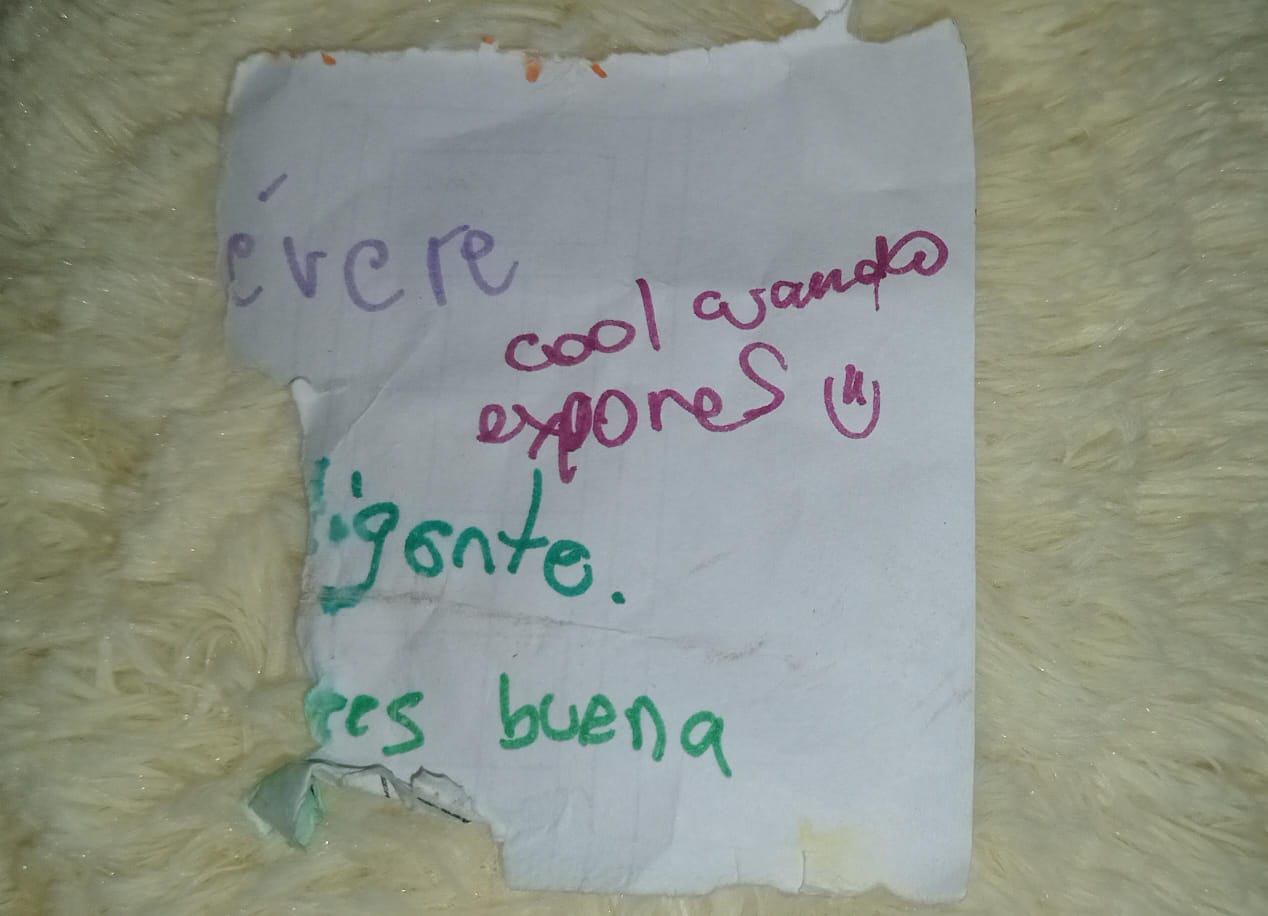 évere
cool cuando
expones
ligente.
res buena